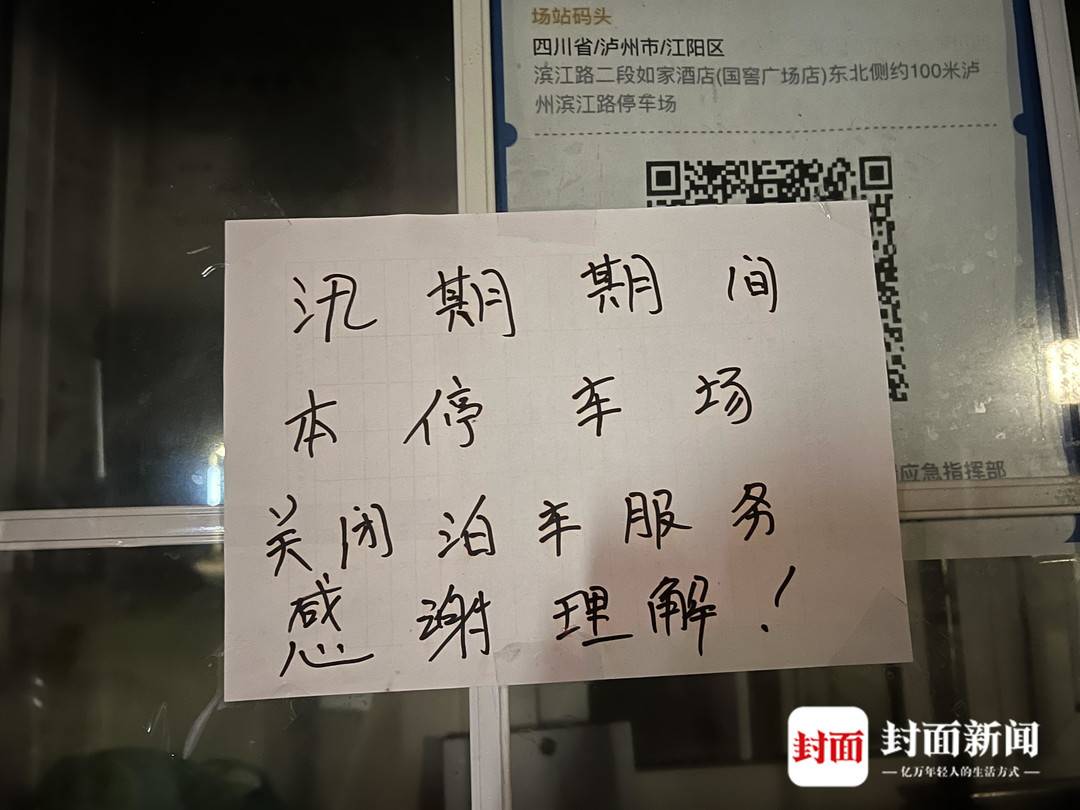 场站码头
四川省/泸州市/江阳区
滨江路二段如家酒店(国窖广场店)东北侧约100米泸
州滨江路停车场
汛期期间
本停车场
关闭泊车服务
感谢理解!
应急指挥部
封面
封面新闻
亿万年轻人的生活方式